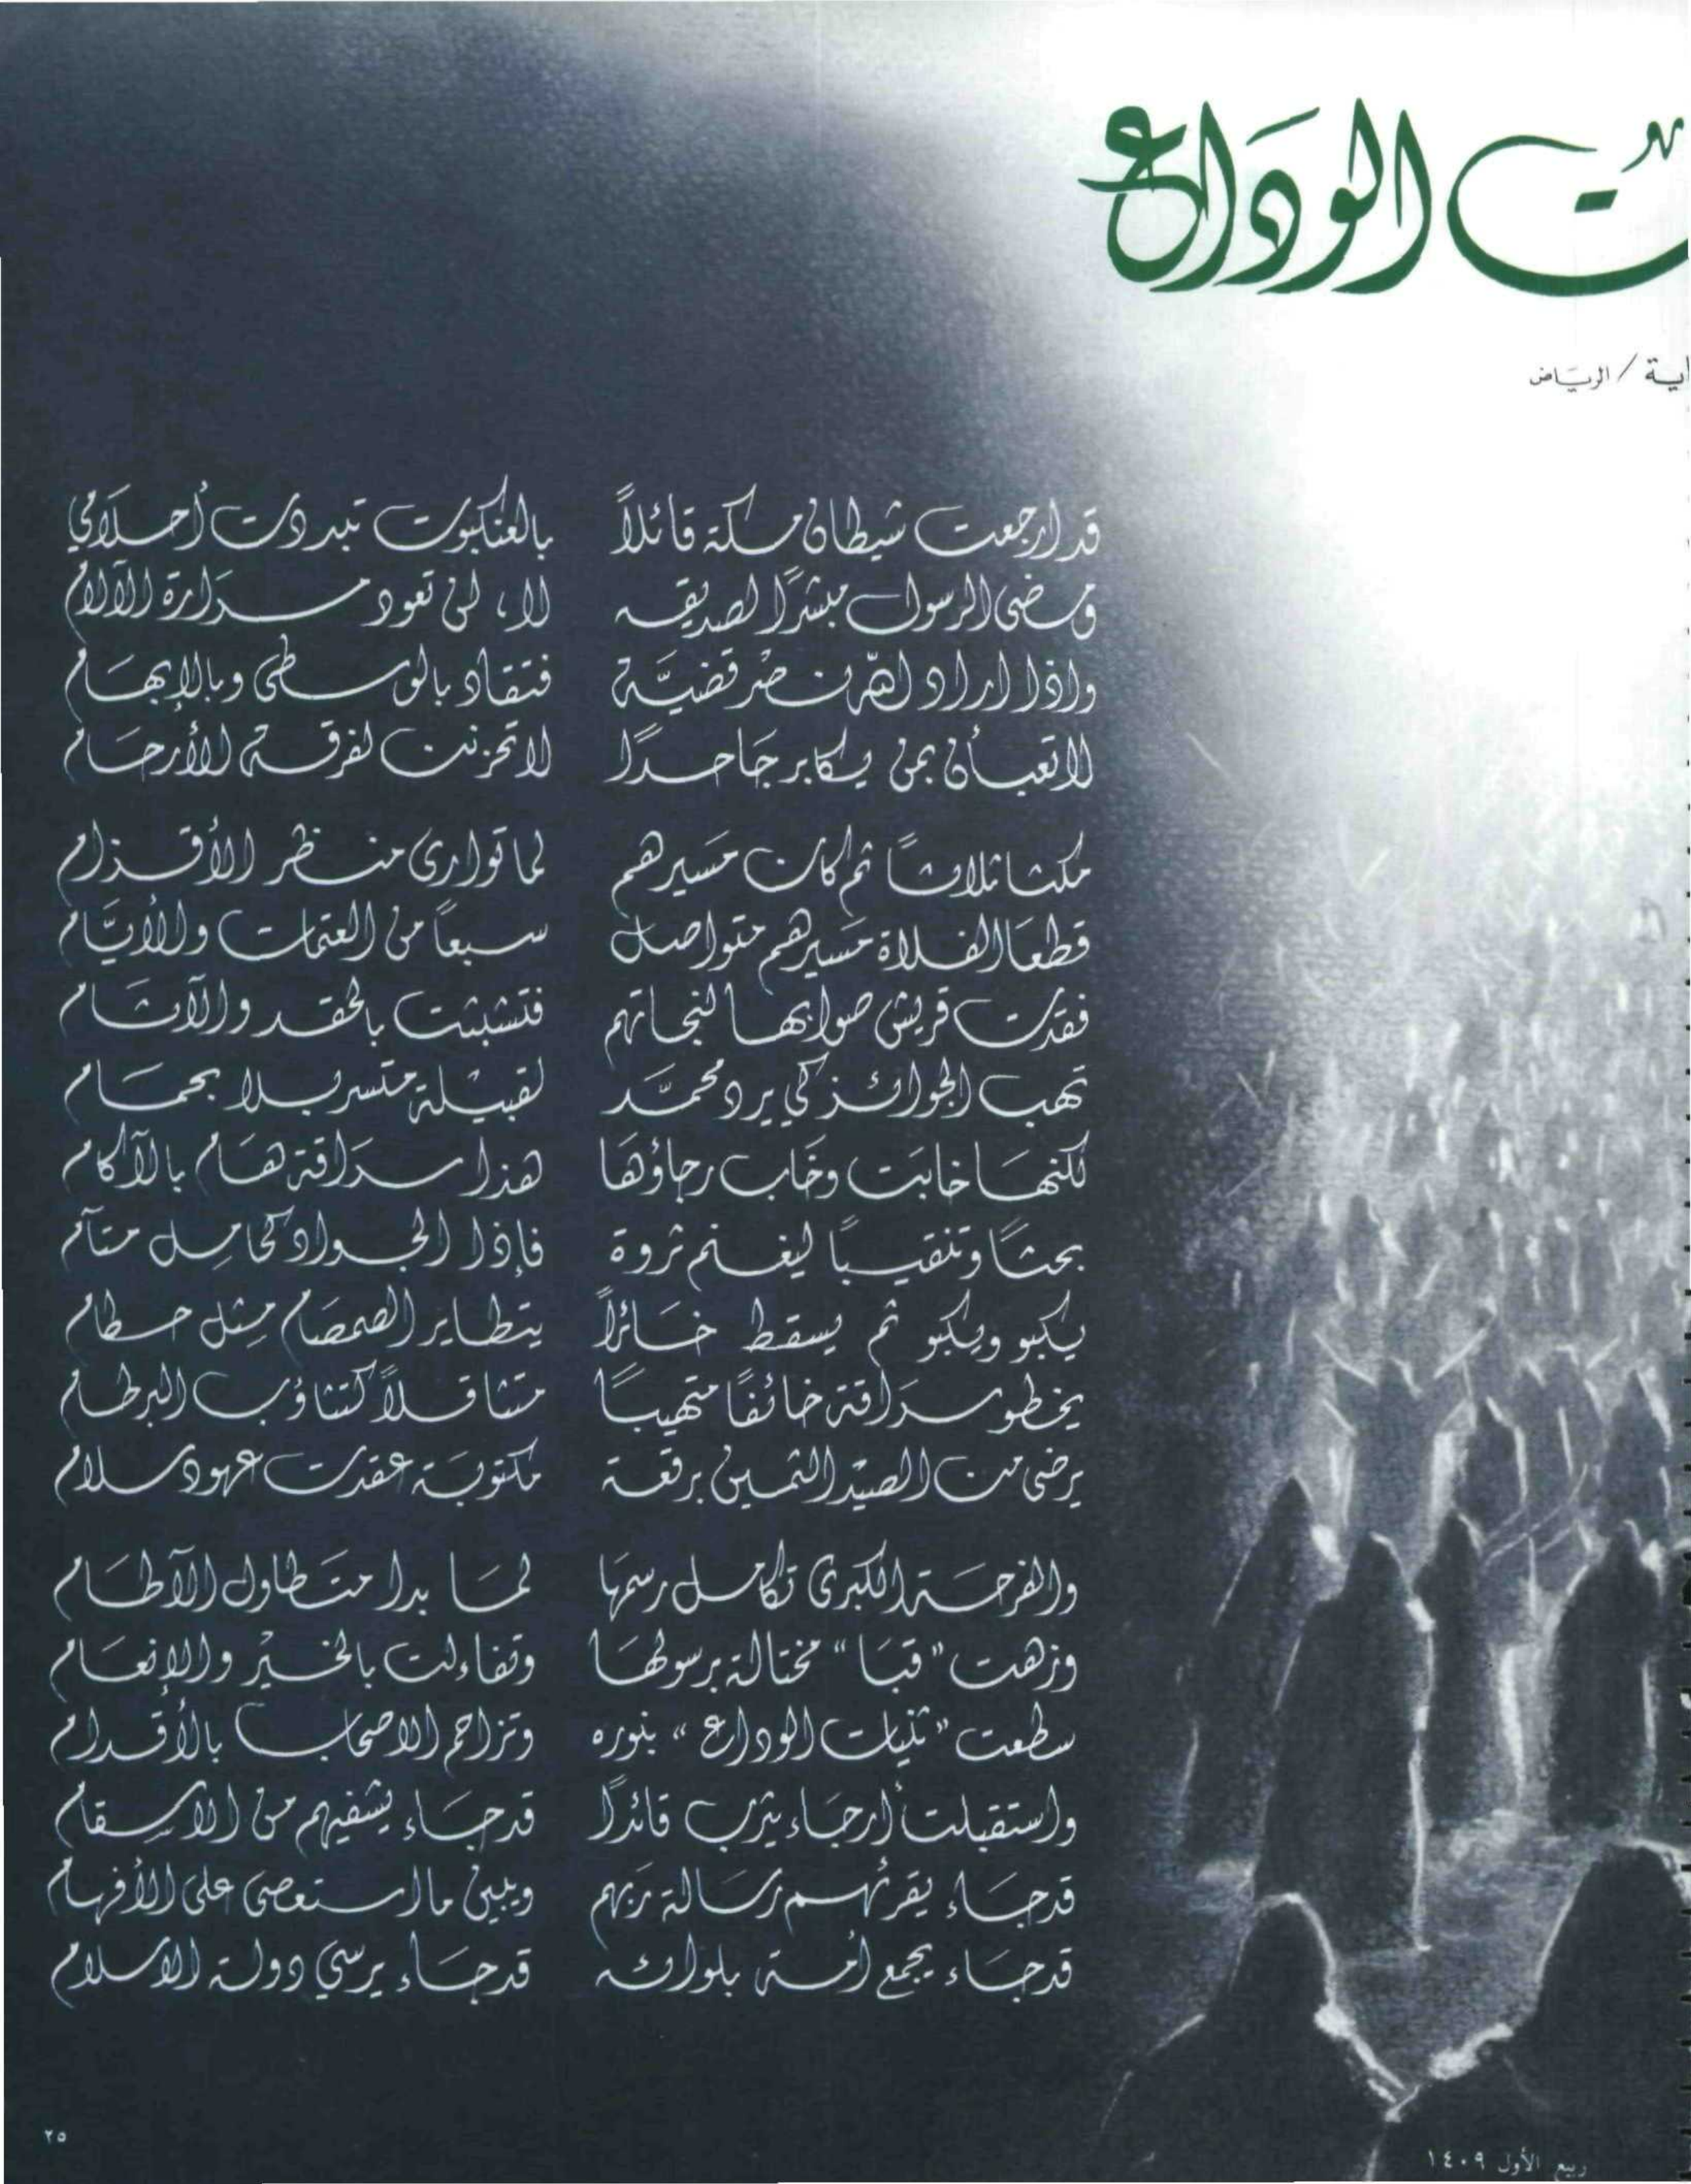 ت الوداع
اية / الرياض
قد ارجعت شيطان مكة قائلاً بالعنكبوت تبددت أحلامي
ومضى الرسول مبشرًا لصديقه لا ، لن تعود مرارة الآلام
واذا اراد الله نصر قضيَّة فتقاد بالوسطى وبالإبهام
لا تعبأن بمن يكابر جاحدًا لا تحزنن لفرقة الأرحام
مكثا ثلاثًا ثم كان مسيرهم لما توارى منظر الأقزام
قطعا الفلاة مسيرهم متواصل سبعاً من العتمات والأيَّام
فقدت قريش صوابها لنجاتهم فتشبثت بالحقد والآثام
تهب الجوائز كي يرد محمَّد لقبيلة متسربلا بحمام
لكنها خابت وخاب رجاؤها هذا سراقة هام بالآكام
بحثًا وتنقيبًا ليغنم ثروة فإذا الجواد كحامل متآم
يكبو ويكبو ثم يسقط خائرًا يتطاير الصمصام مثل حطام
يخطو سراقة خائفًا متهيبًا متثاقلاً كتثاؤب البرطام
يرضى من الصيد الثمين برقعة مكتوبة عقدت عهود سلام
والفرحة الكبرى تكامل رسمها لما بدا متطاول الآطام
وزهت "قبا" مختالة برسولها وتفاءلت بالخير والإنعام
سطعت "ثنيات الوداع" بنوره وتزاحم الاصحاب بالأقدام
واستقبلت أرجاء يثرب قائدًا قد جاء يشفيهم من الاسقام
قد جاء يقرئهم رسالة ربهم ويبين ما استعصى على الأفهام
قد جاء يجمع أمة بلوائه قد جاء يرسي دولة الاسلام
ربيع الأول ١٤٠٩
٢٥